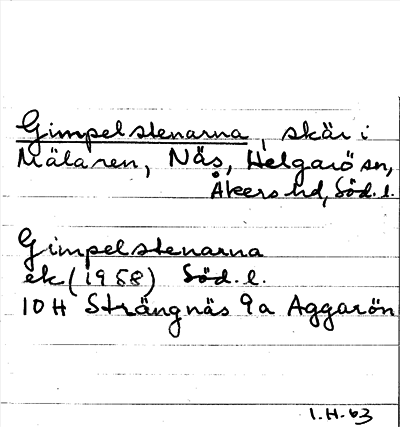 Gimpelstenarna, skär i
Mälaren, Näs, Helgarö sn,
Åkers hd, Söd.l.
Gimpelstenarna
ek (1958) Söd.l.
10 H Strängnäs 9a Aggarön
1.H.63